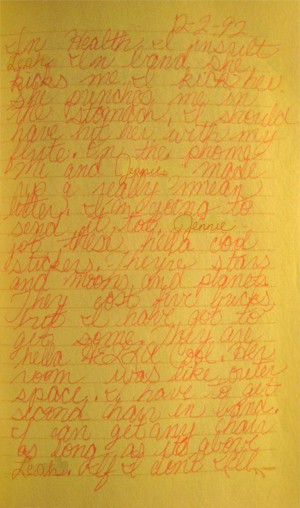 12-2-92
In Health I insult
Leah. In band she
kicks me. I kick her
She punches me in
the stomach. I should
have hit her with my
flute. On the phone
Mi and Jennie made
up a really mean
letter. I'm going to
send it to Jennie
got these hella cool
stickers. They're stars
and moons and planets.
They cost five bucks,
but I have got to
get some. They are
hella cool. Her
room was like outer
space. I have to get
second chair in band.
I can get any chair
as long as its above
Leah. If I dont I'll